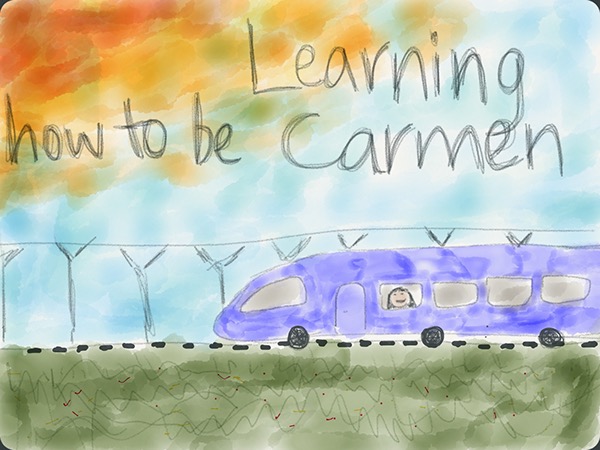 Learning
how to be Carmen